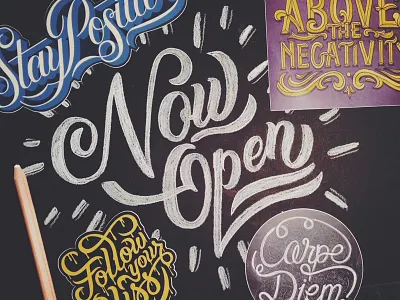 Stay Positiv
ABOVE
THE
NEGATIVITY
Now
Open
Follow
your
Bliss
Carpe
Diem